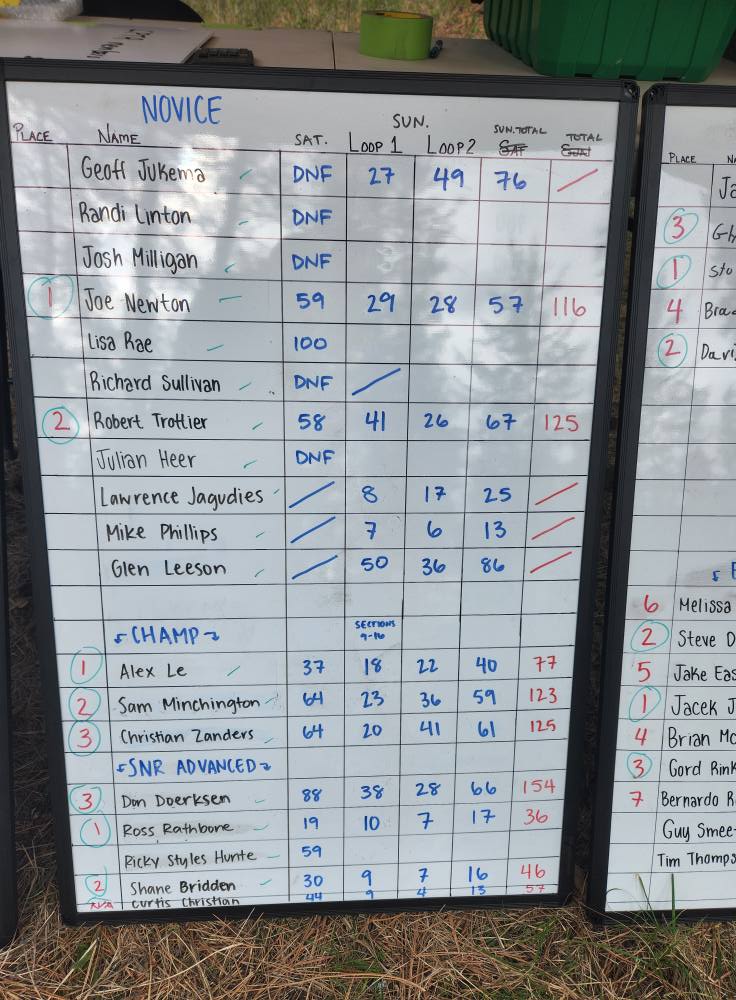 NOVICE
SUN.
PLACE NAME SAT. LOOP 1 LOOP 2 SUN.TOTAL TOTAL
Geoff Jukema DNF 27 49 76
Randi Linton DNF
Josh Milligan DNF
1 Joe Newton 59 29 28 57 116
Lisa Rae 100
Richard Sullivan DNF
2 Robert Trottier 58 41 26 67 125
Julian Heer DNF
Lawrence Jagudies 8 17 25
Mike Phillips 7 6 13
Glen Leeson 50 36 86
CHAMP SECTIONS
9-16
1 Alex Le 37 18 22 40 77
2 Sam Minchington 64 23 36 59 123
3 Christian Zanders 64 20 41 61 125
SNR ADVANCED
3 Don Doerksen 88 38 28 66 154
1 Ross Rathbone 19 10 7 17 36
Ricky Styles Hunte 59
2 Shane Bridden 30 9 7 16 46
Curtis Christian 44 9 4 13 57
PLACE NA
Ja
3
1 Sto
4 Brad
2 Davi
6 Melissa
2 Steve D
5 Jake Eas
1 Jacek J
4 Brian Mc
3 Gord Rink
7 Bernardo R
Guy Smee
Tim Thomps